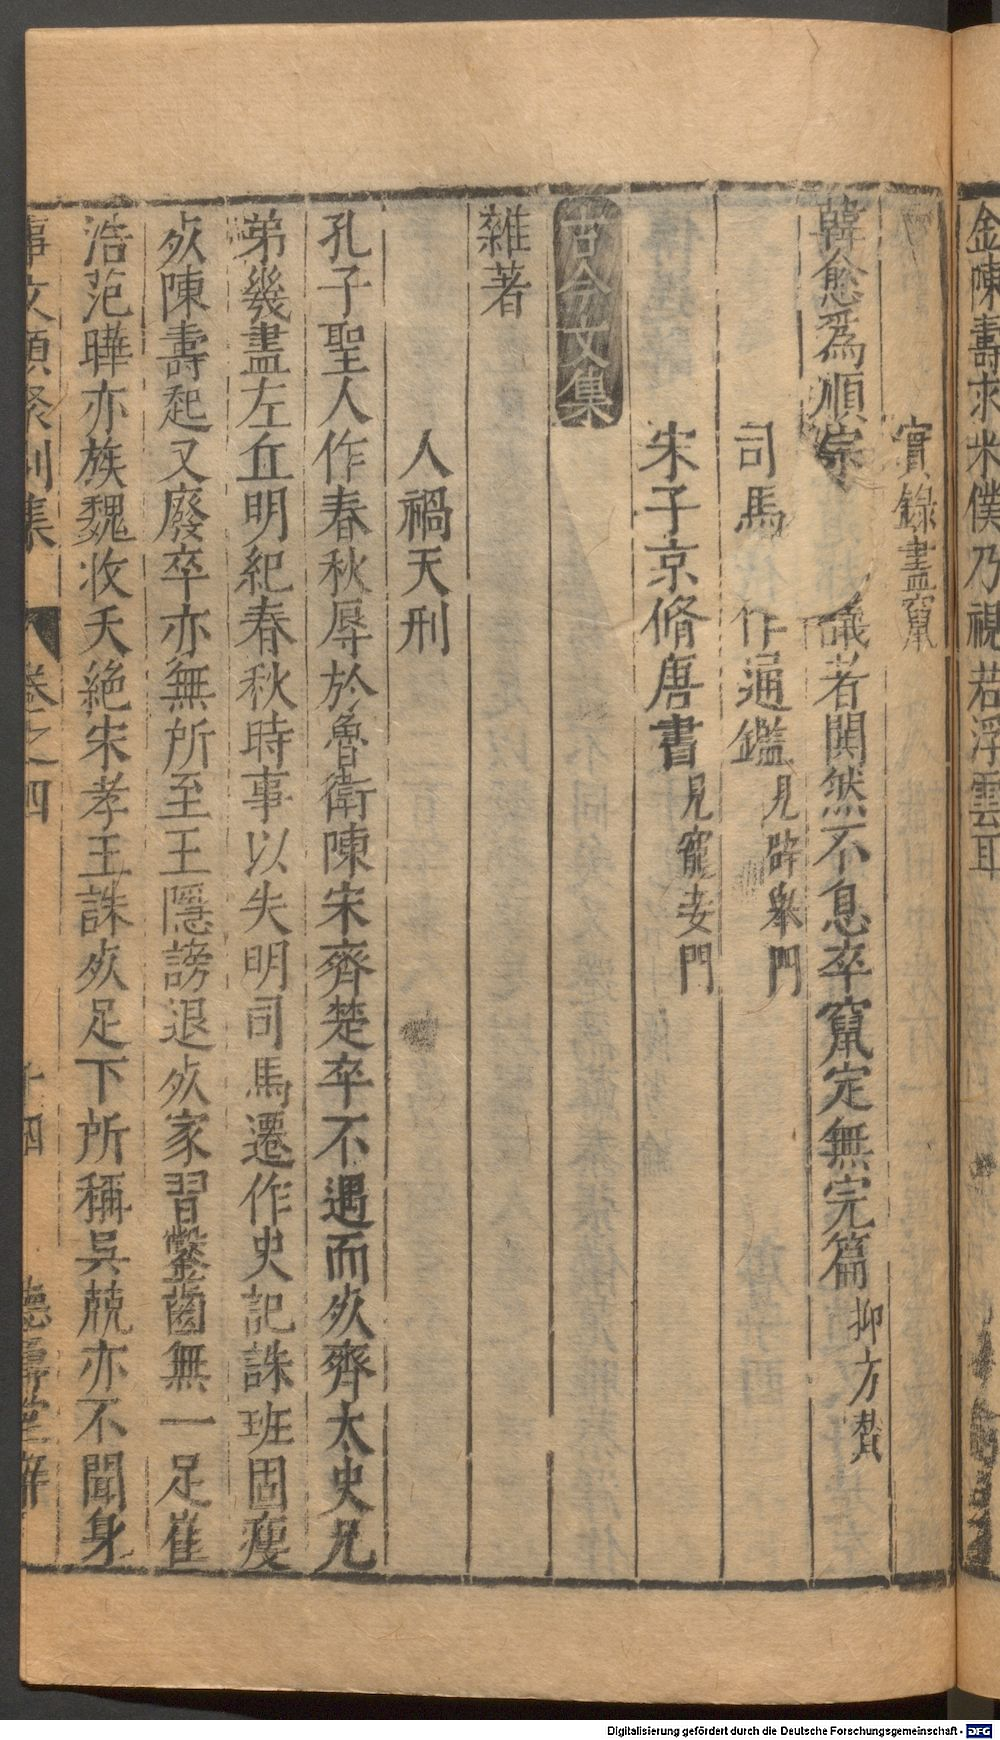 金陳壽求米僕乃視若浮雲耳
實錄盡竄
韓愈為順宗 議者閧然不息卒竄定無完篇抑方贊
司馬 作通鑑見辟舉門
宋子京脩唐書見寵妾門
古今文集
雜著
人禍天刑
孔子聖人作春秋辱於魯衛陳宋齊楚卒不遇而死齊太史兄
弟幾盡左丘明紀春秋時事以失明司馬遷作史記誅班固瘦
死陳壽起又廢卒亦無所至王隱謗退死家習鑿齒無一足崔
浩范曄亦族魏收夭絕宋孝王誅死足下所稱吳兢亦不聞身
事文類聚別集 卷之四 十四 德壽堂梓
Digitalisierung gefördert durch die Deutsche Forschungsgemeinschaft - DFG